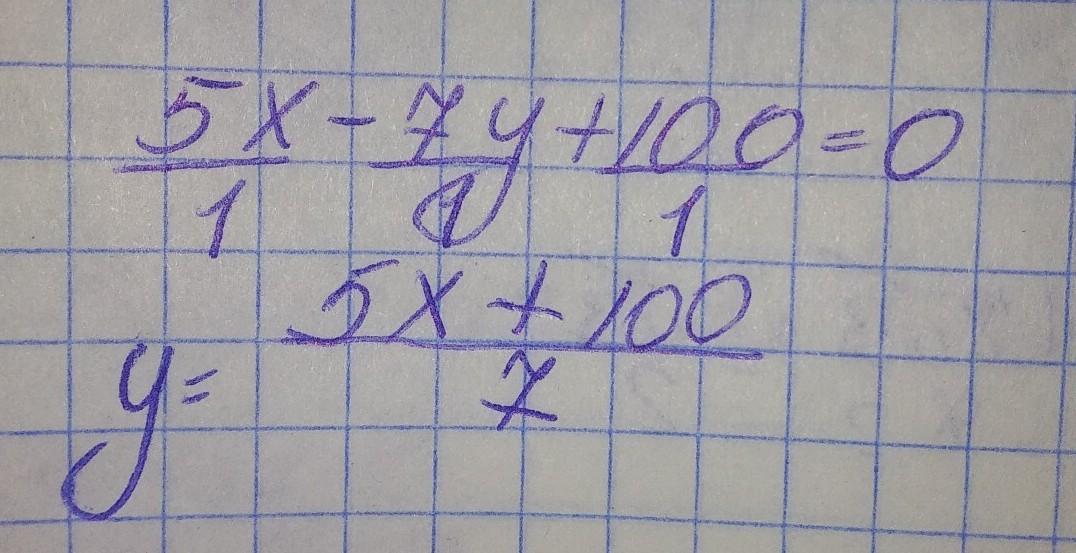 5x/1 - 7y/1 + 100/1 = 0
y = 5x + 100/7